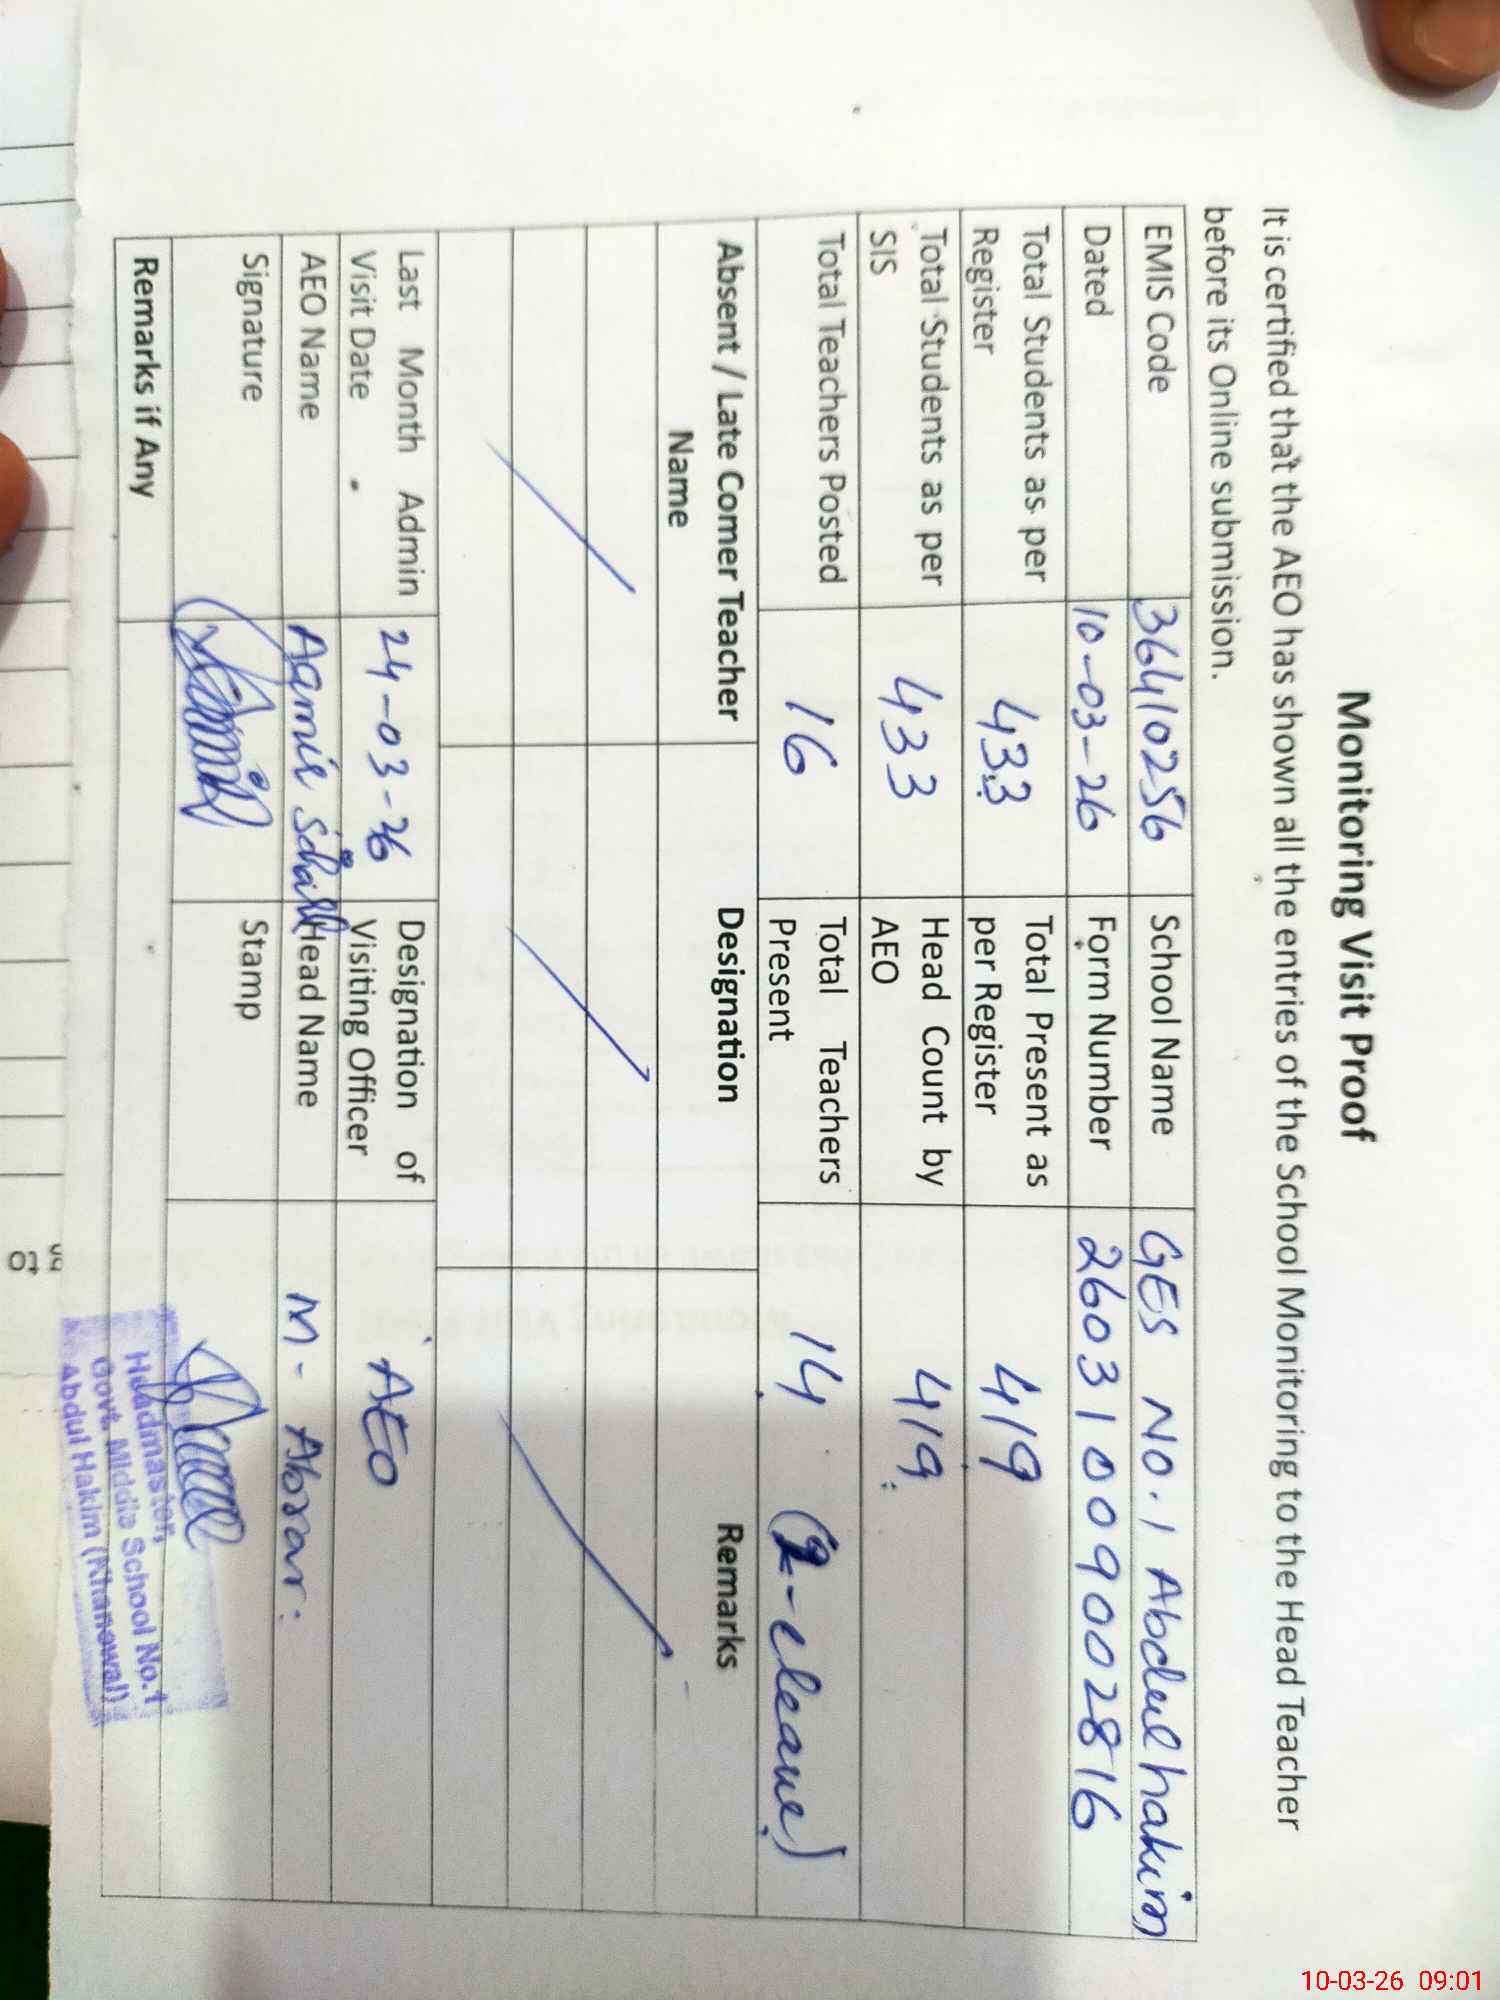 Monitoring Visit Proof
It is certified that the AEO has shown all the entries of the School Monitoring to the Head Teacher
before its Online submission.
EMIS Code 36410256 School Name GES No.1 Abdul hakim
Dated 10-03-26 Form Number 26031009002816
Total Students as per Register 433 Total Present as per Register 419
Total Students as per SIS 433 Head Count by AEO 419
Total Teachers Posted 16 Total Teachers Present 14 (2-leave)
Absent / Late Comer Teacher Name Designation Remarks
Last Month Admin Visit Date 24-03-26 Designation of Visiting Officer AEO
AEO Name Head Name M- Absar
Signature Stamp
Remarks if Any
Headmaster,
Govt. Middle School No.1
Abdul Hakim (Khanewal)
10-03-26 09:01